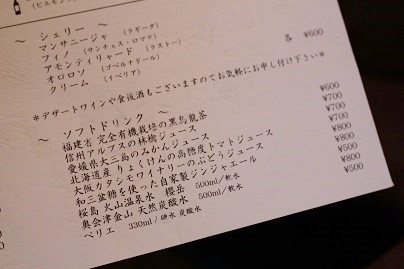 ～ シェリー ～
マンサニージャ (ラギータ)
フィノ (サンチェス・ロマテ)
アモンティリャード (ラストー)
オロロソ (ゴベルナドール)
クリーム (イベリア)
各 ¥600
＊デザートワインや食後酒もございますのでお気軽にお申し付け下さい＊
～ ソフトドリンク ～
福建省 完全有機栽培の黒烏龍茶 ¥600
信州アルプスの林檎ジュース ¥700
愛媛県大三島のみかんジュース ¥700
北海道産 りょくけんの高糖度トマトジュース ¥700
大阪カタシモワイナリーのぶどうジュース ¥800
和三盆糖を使った自家製ジンジャエール ¥700
桜島 火山温泉水 櫻岳 500ml/軟水 ¥500
奥会津金山 天然炭酸水 500ml/軟水 ¥800
ペリエ 330ml/硬水 炭酸水 ¥500